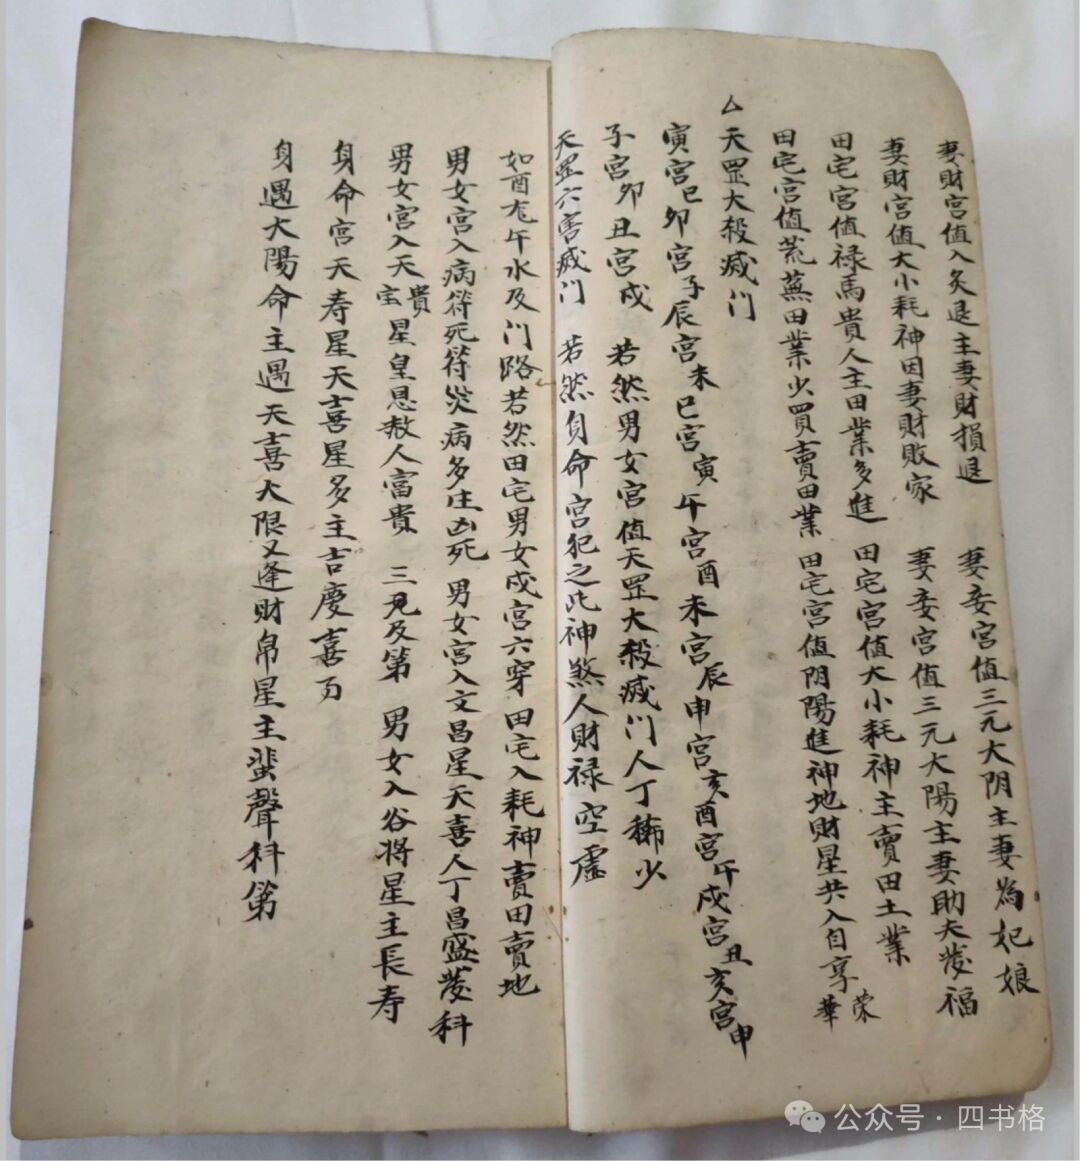 妻財宮值入炙退主妻財損退　妻妾宮值三元大阴主妻為妃娘
妻財宮值大小耗神因妻財敗家　妻妾宮值三元大陽主妻助夫發福
田宅宮值禄馬貴人主田業多進　田宅宮值大小耗神主賣田土業
田宅宮值荒蕪田業少買賣田業　田宅宮值阴陽進神地財星共入自享榮華
厶天罡大殺滅门
寅宮巳卯宮子辰宮未巳宮寅午宮酉未宮辰申宮亥酉宮午戌宮丑亥宮申
子宮卯丑宮戌　若然男女宮值天罡大殺滅门人丁稀少
天罡六害滅门　若然身命宮犯之此神煞人財禄空虛
如酉午水及门路若然田宅男女戌宮六穿　田宅入耗神賣田賣地
男女宮入病符死符災病多主凶死　男女宮入文昌星天喜人丁昌盛發科
男女宮入天貴宝星皇恩赦人富貴　三見及第　男女入谷将星主長寿
身命宮天寿星天喜星多主吉慶喜
身遇大陽命主遇天喜大限又逢財帛星主蜚聲科第
公众号·四书格